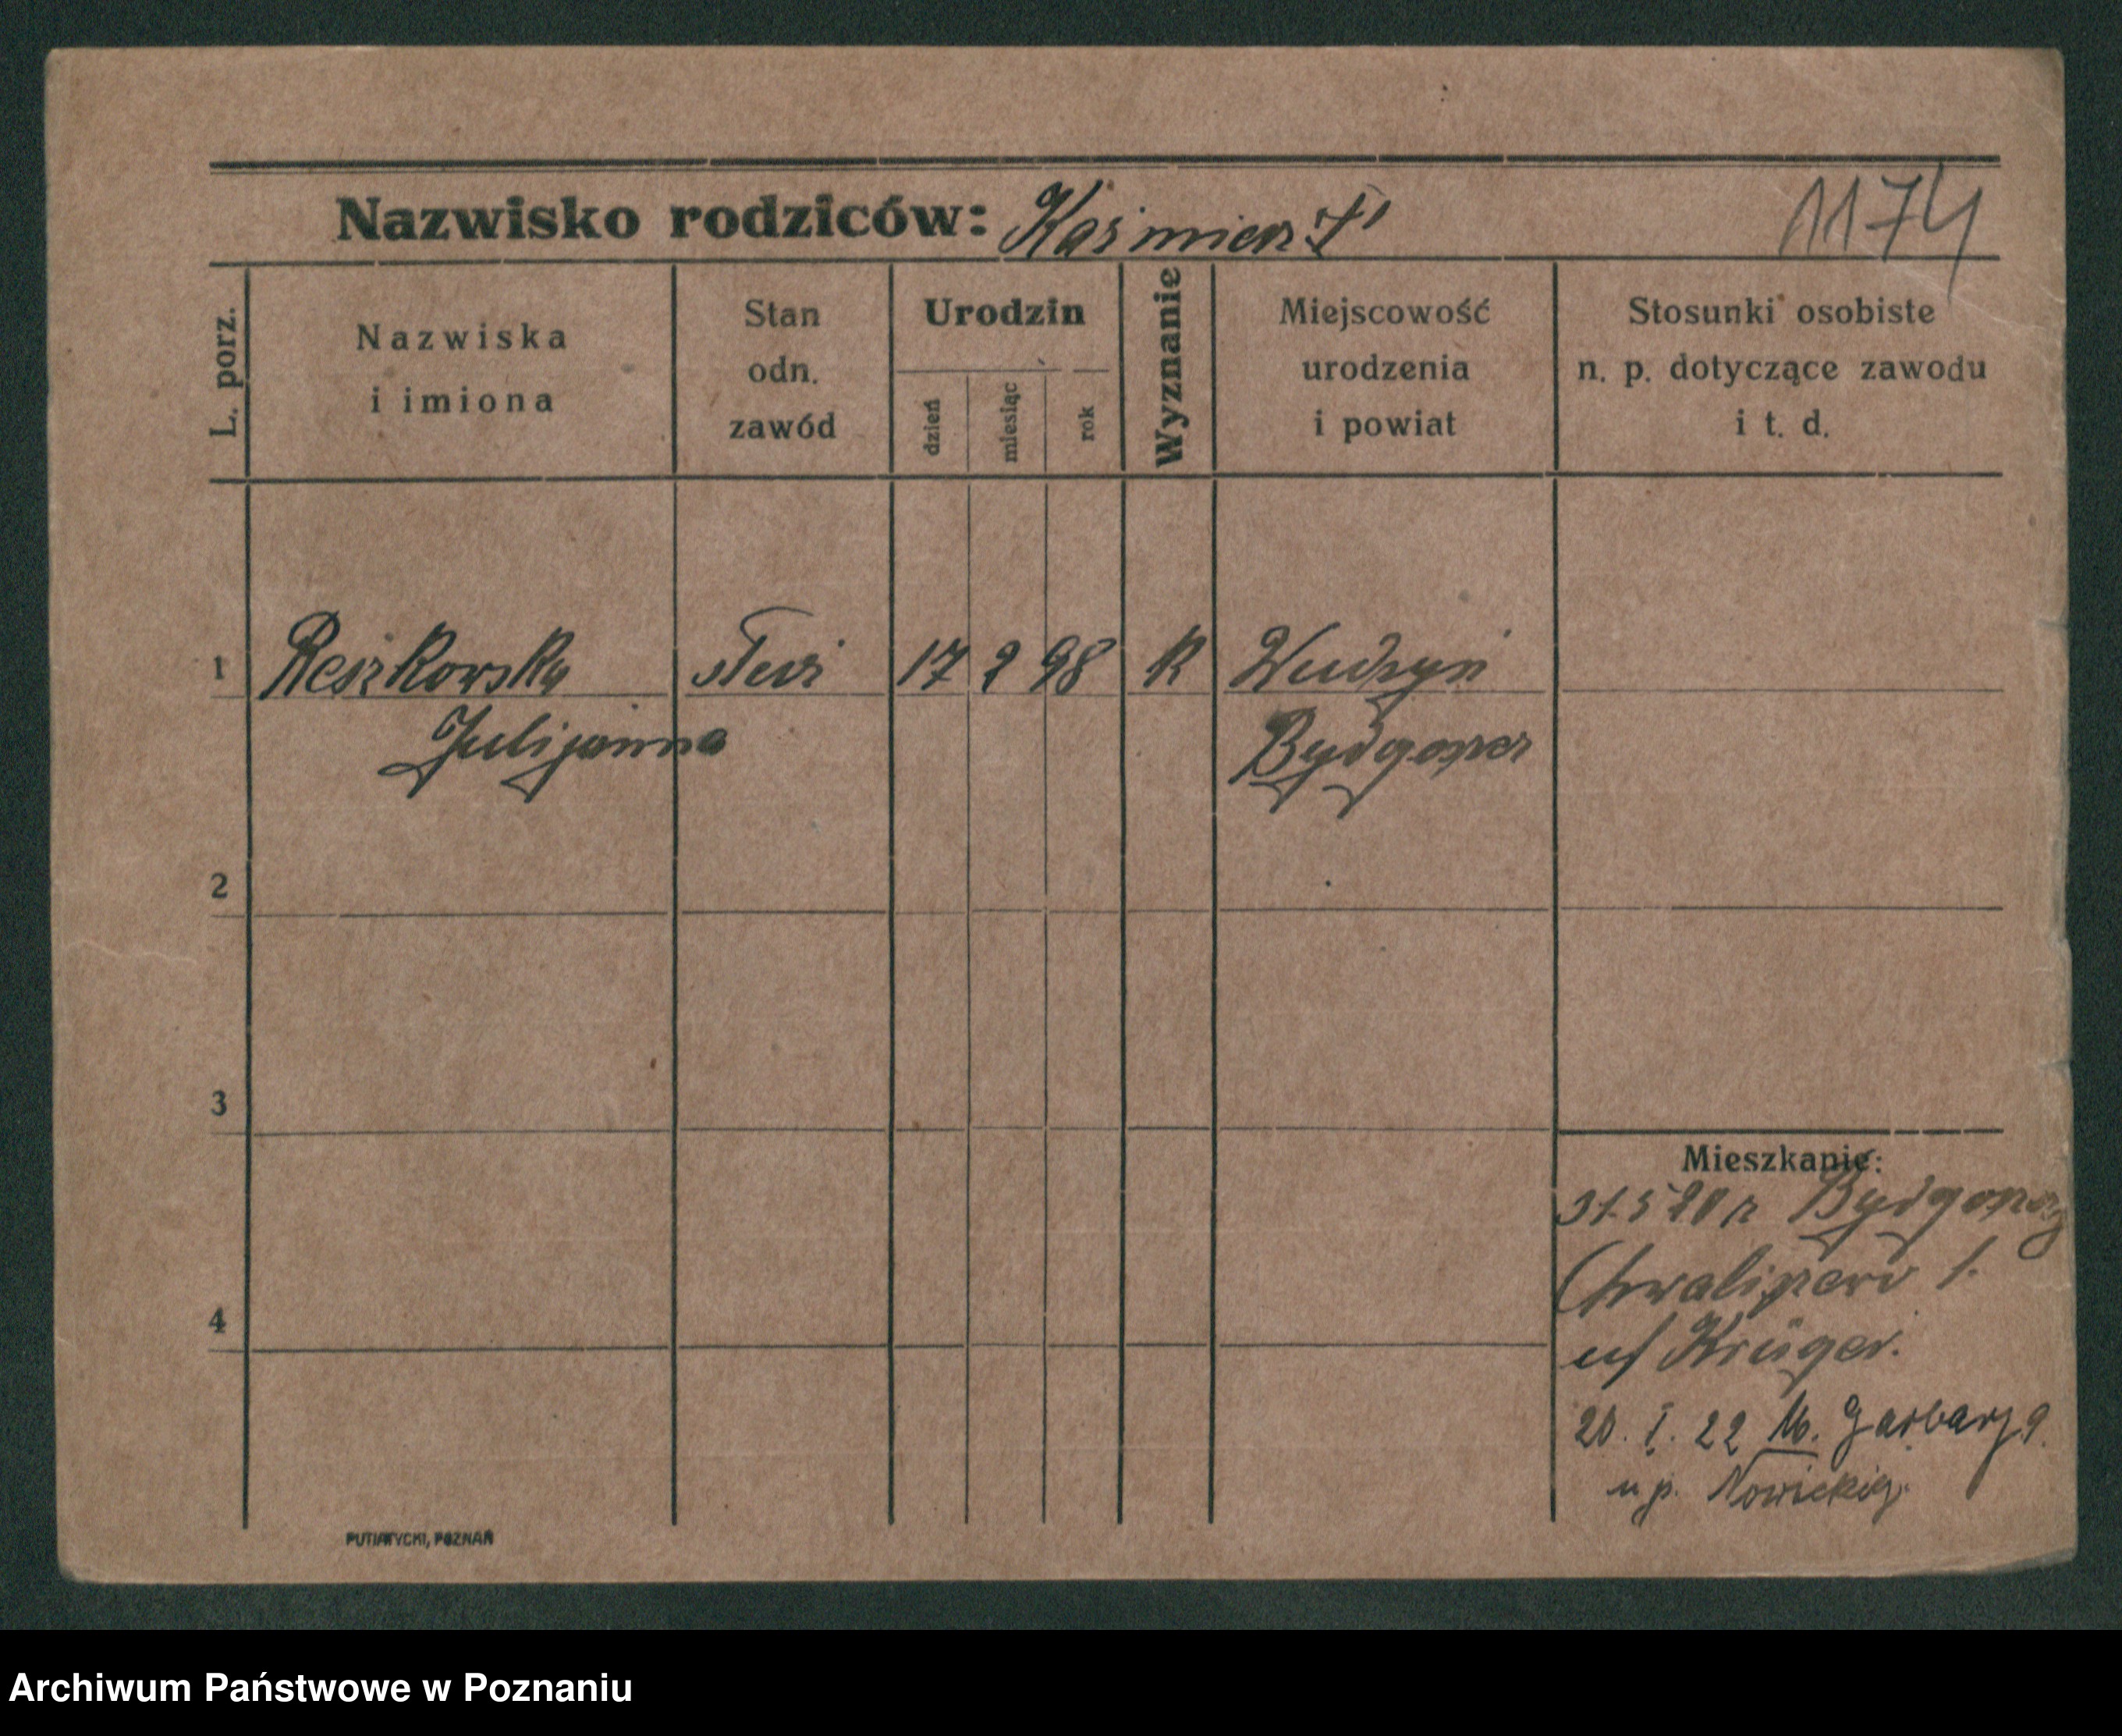 Nazwisko rodziców: Kaźmierz † 1174
L. porz.
Nazwiska
i imiona
Stan
odn.
zawód
Urodzin
dzień
miesiąc
rok
Wyznanie
Miejscowość
urodzenia
i powiat
Stosunki osobiste
n. p. dotyczące zawodu
i t. d.
1 Reszkowska 17 2 98 K Wudzyń
Julijanna Bydgoszcz
2
3
4
Mieszkanie:
31.5 20 r Bydgoszcz
Chwaliszewo 1.
u/ Krüger.
20. I. 22 M. Garbary 9.
u p. Nowickiej
PUTIATYCKI, POZNAŃ
Archiwum Państwowe w Poznaniu